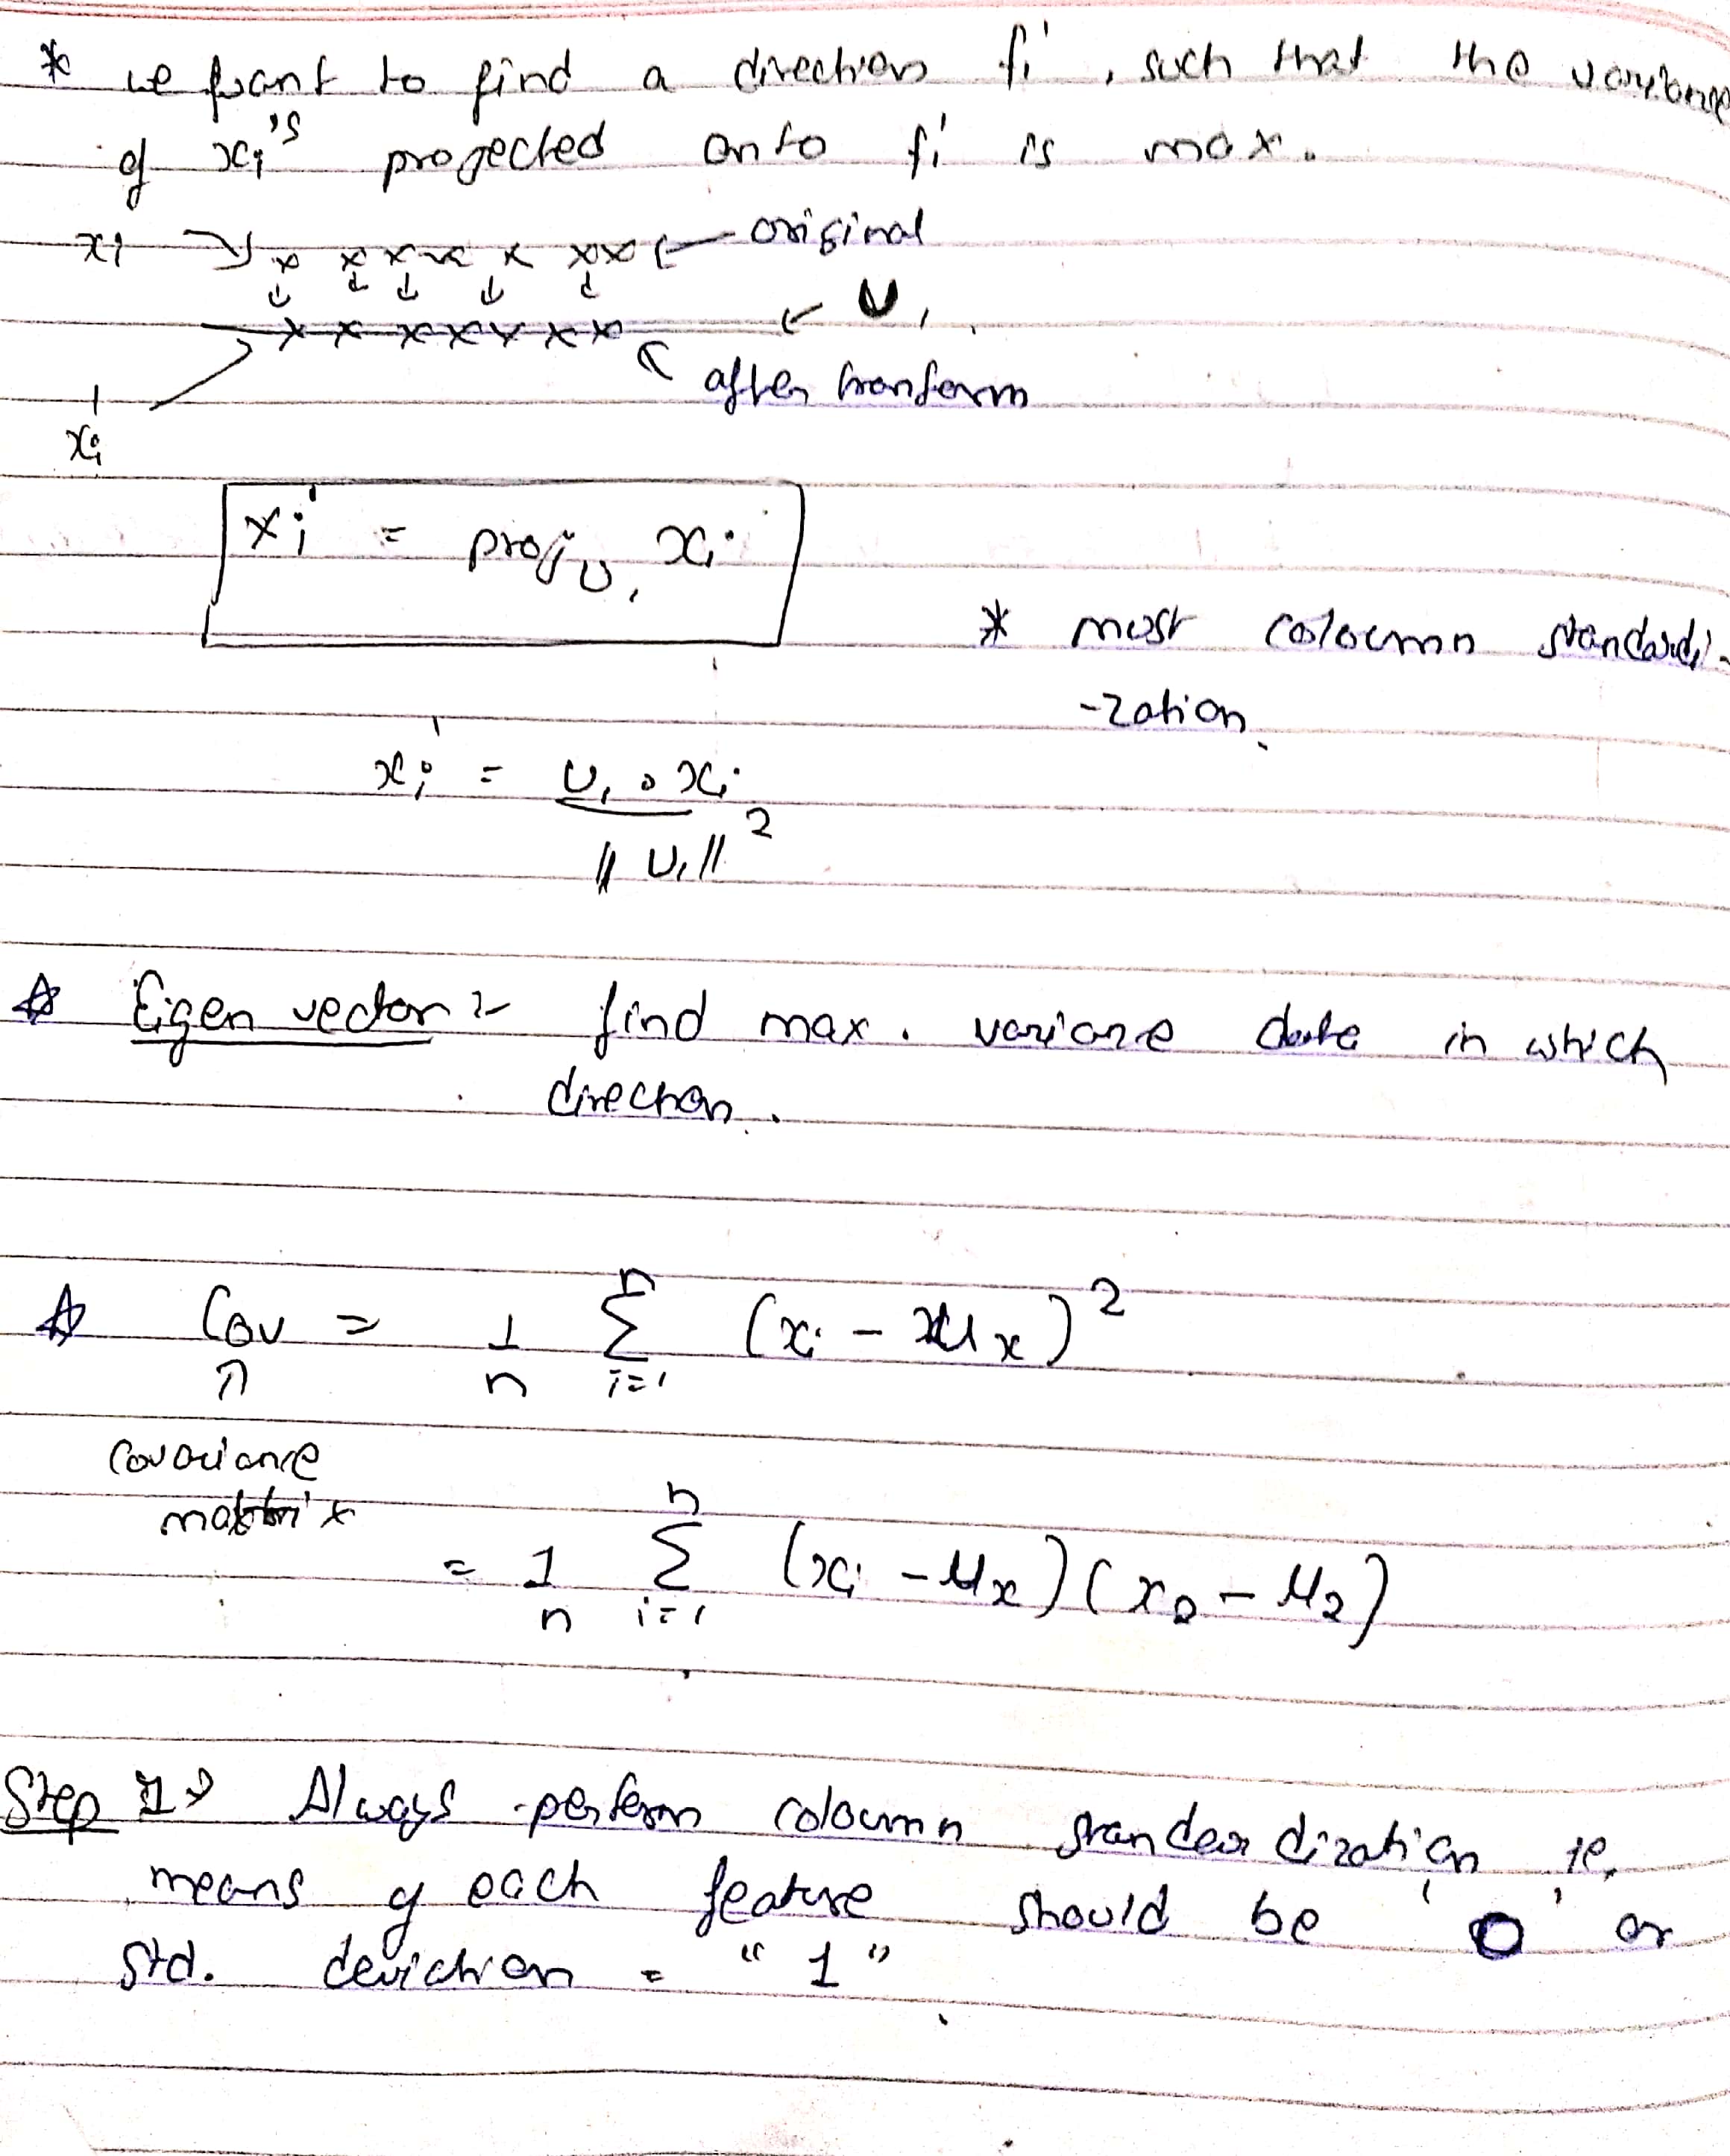 * we want to find a direction f₁', such that the variance
of xᵢ's projected onto f₁' is max.
xᵢ → x x x x x x x ← original
↓ ↓ ↓ ↓ ↓
x x x x x x x ← U₁
after tranform
xᵢ'
xᵢ' = proj U₁ xᵢ
* most coloumn standardi-
-zation.
xᵢ' = U₁ . xᵢ
‖U₁‖²
☆ Eigen vector :- find max. variance data in which
direction.
☆ Cov = 1/n Σ (i=1 to n) (xᵢ - μₓ)²
↑
covariance
matrix
= 1/n Σ (i=1 to n) (xᵢ - μₓ) (x₂ - μ₂)
Step 1 → Always perform coloumn standardization ie,
means of each feature should be '0' or
std. deviation = "1"